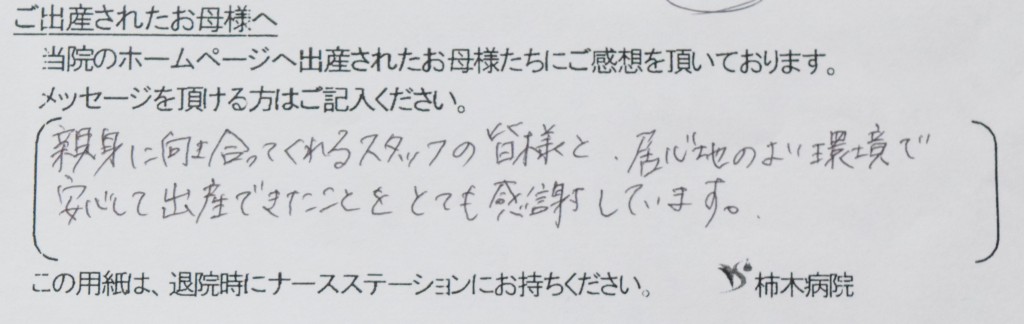 ご出産されたお母様へ
当院のホームページへ出産されたお母様たちにご感想を頂いております。
メッセージを頂ける方はご記入ください。
親身に向き合ってくれるスタッフの皆様と、居心地のよい環境で
安心して出産できたことをとても感謝しています。
この用紙は、退院時にナースステーションにお持ちください。 柿木病院